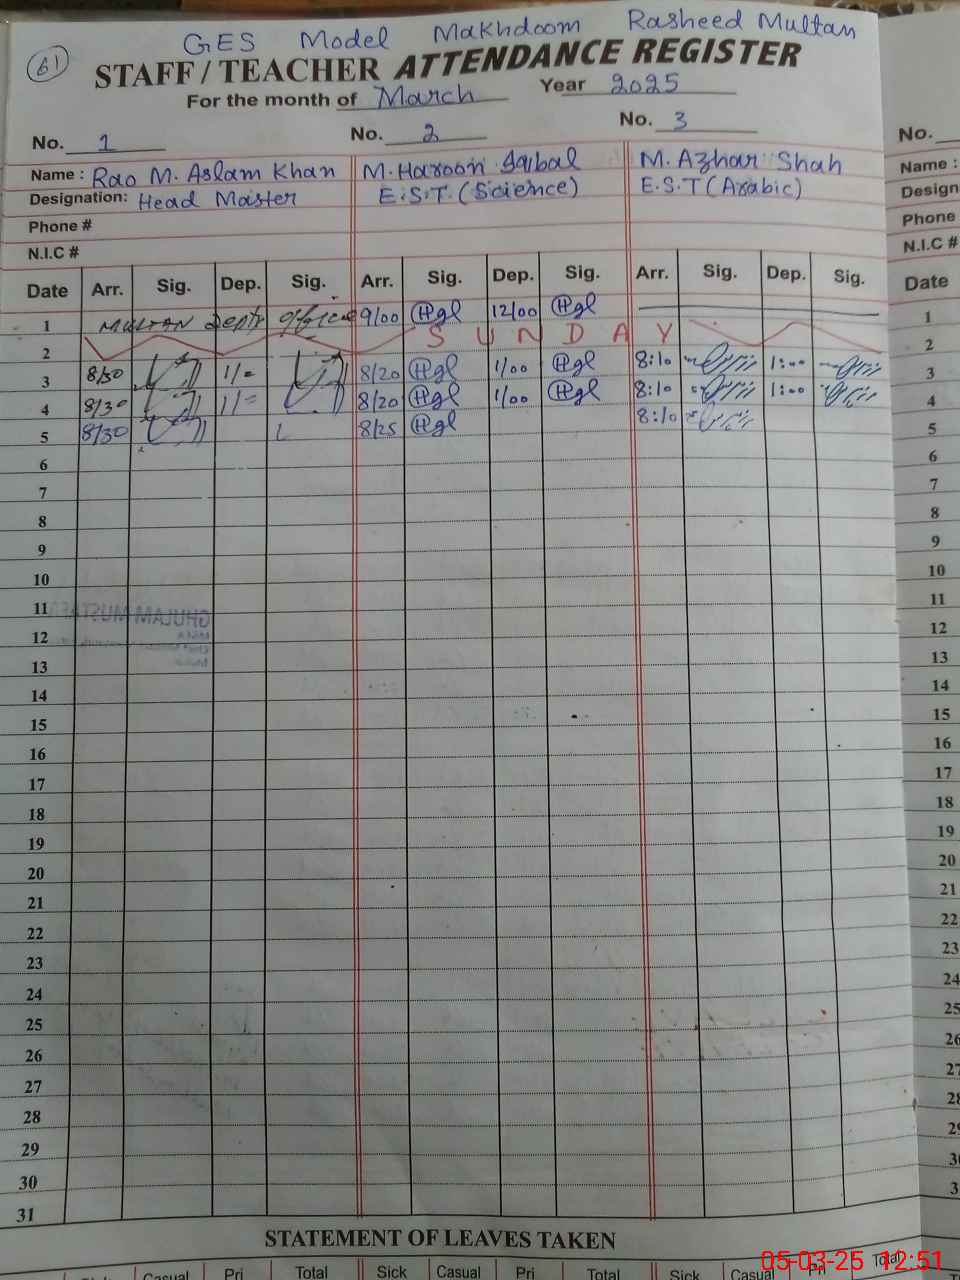 GES Model Makhdoom Rasheed Multan
61
STAFF / TEACHER ATTENDANCE REGISTER
For the month of March Year 2025
No. 1 No. 2 No. 3 No.
Name : Rao M. Aslam Khan M. Haroon Iqbal M. Azhar Shah Name :
Designation: Head Master E.S.T. (Science) E.S.T (Arabic) Design
Phone # Phone
N.I.C # N.I.C #
Date Arr. Sig. Dep. Sig. Arr. Sig. Dep. Sig. Arr. Sig. Dep. Sig. Date
1 MULTAN Depty office 9/00 12/00 1
2 SUNDAY 2
3 8/30 1/- 8/20 1/00 8:10 1:00 3
4 8/30 1/- 8/20 1/00 8:10 1:00 4
5 8/30 8/25 8:10 5
6 6
7 7
8 8
9 9
10 10
11 GHULAM MUSTAFA 11
12 12
13 13
14 14
15 15
16 16
17 17
18 18
19 19
20 20
21 21
22 22
23 23
24 24
25 25
26 26
27 27
28 28
29 29
30 30
31 3
STATEMENT OF LEAVES TAKEN
Sick Casual Pri Total Sick Casual Pri Total Sick Casual Pri Total
05-03-25 12:51